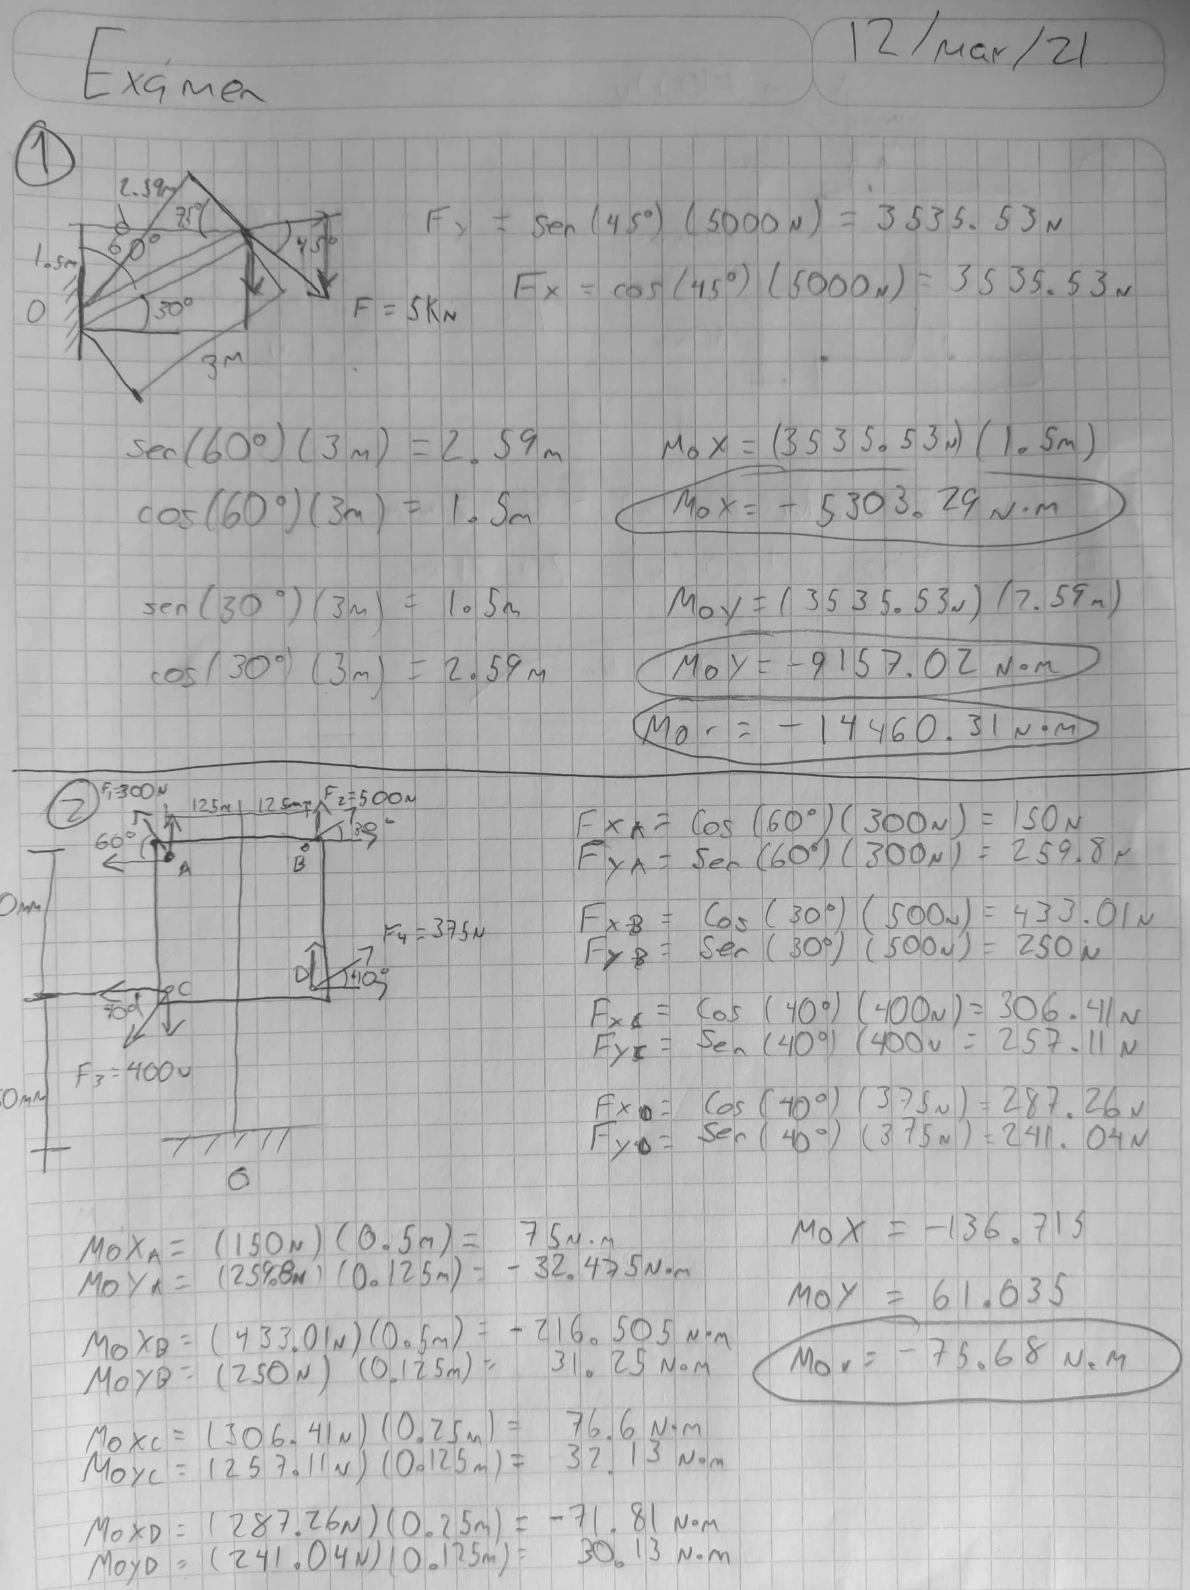 Exámen
12/mar/21
1
2.59m
d
75°
60°
45°
1.5m
O
30°
F = 5KN
3M
Fy = sen (45°) (5000N) = 3535.53N
Fx = cos (45°) (5000N) = 3535.53N
sen(60°)(3m) = 2.59m
cos(60°)(3m) = 1.5m
sen(30°)(3m) = 1.5m
cos(30°)(3m) = 2.59m
MoX = (3535.53N)(1.5m)
MoX = - 5303.29 N·m
MoY = (3535.53N)(2.59m)
MoY = -9157.02 N·m
Mor = -14460.31 N·m
2
F1=300N
125m
F2=500N
60°
A
B
0mm
F4=375N
C
D
40°
F3=400N
50mm
O
FxA = Cos (60°)(300N) = 150N
FyA = Sen (60°)(300N) = 259.8N
FxB = Cos (30°)(500N) = 433.01N
FyB = Sen (30°)(500N) = 250N
FxC = Cos (40°)(400N) = 306.41N
FyC = Sen (40°)(400N = 257.11N
FxD = Cos (40°)(375N) = 287.26N
FyD = Sen (40°)(375N) = 241.04N
MoXA = (150N)(0.5m) = 75N·m
MoYA = (259.8N)(0.125m) = -32.475N·m
MoXB = (433.01N)(0.5m) = -216.505 N·m
MoYB = (250N) (0.125m) = 31.25 N·m
MoXC = (306.41N)(0.25m) = 76.6 N·m
MoYC = (257.11N)(0.125m) = 32.13 N·m
MoXD = (287.26N)(0.25m) = -71.81 N·m
MoYD = (241.04N)(0.125m) = 30.13 N·m
MoX = -136.715
MoY = 61.035
Mor = -75.68 N·m